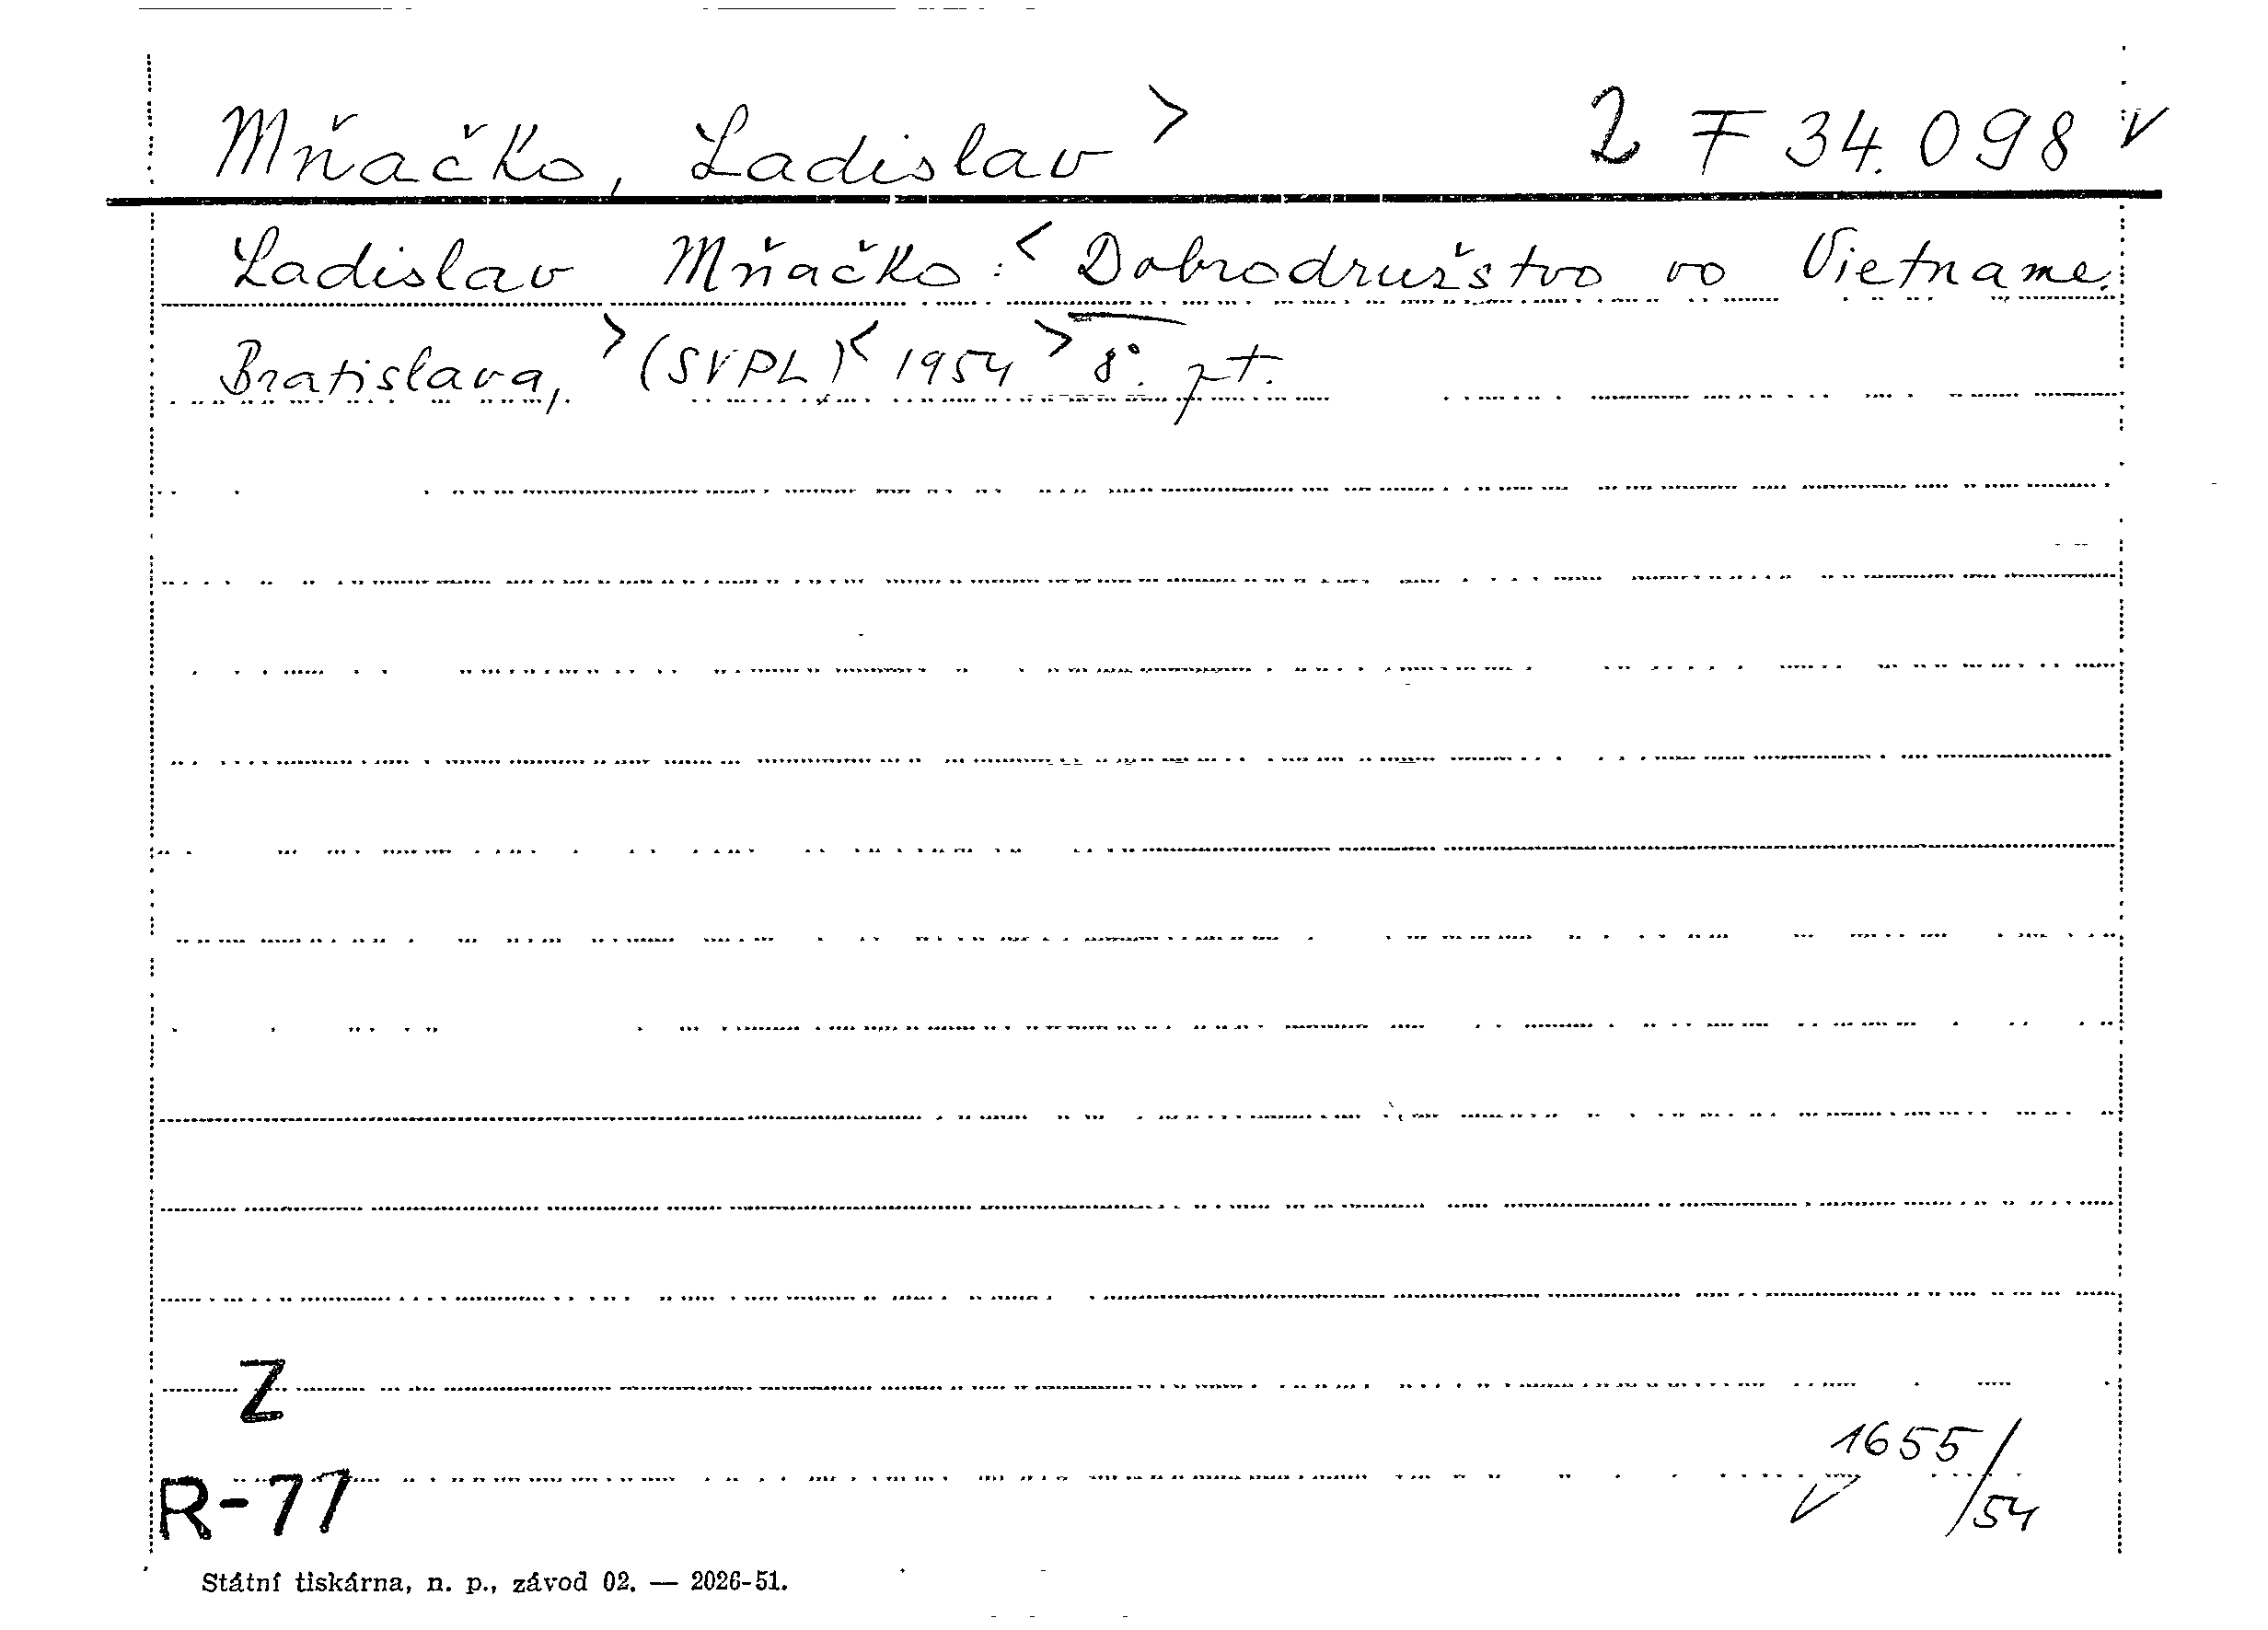 Mňačko, Ladislav > 2 F 34.098 v
Ladislav Mňačko: < Dobrodružstvo vo Vietname.
Bratislava, > (SVPL) < 1954 > 8°. pt.
Z
1655/54
R-77 v
Státní tiskárna, n. p., závod 02. — 2026-51.